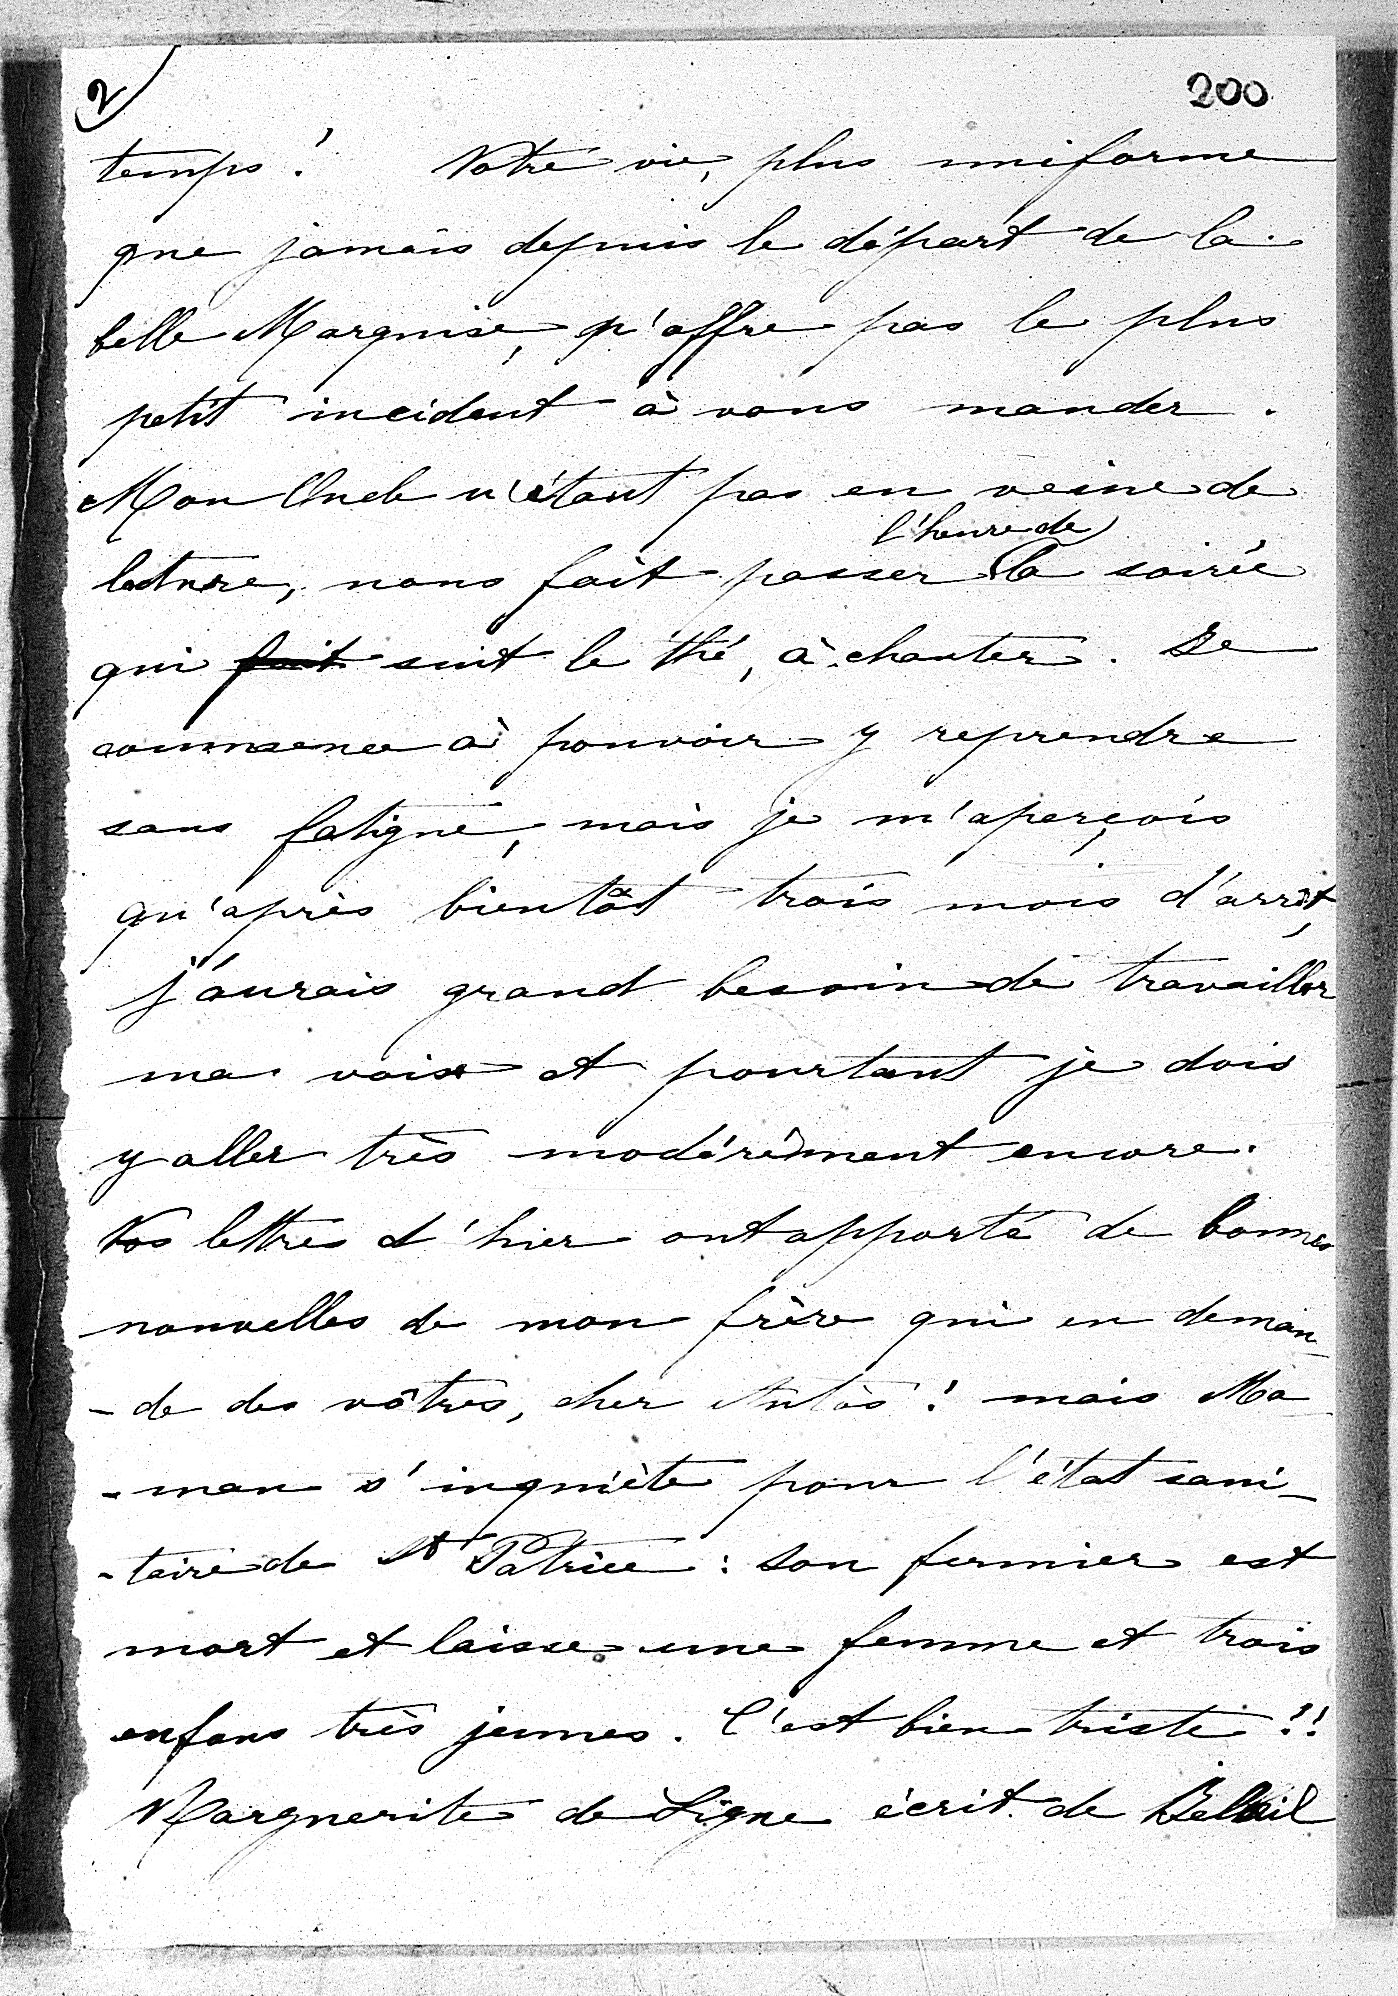 2
200
temps ! Notre vie, plus uniforme
que jamais depuis le départ de la
belle Marquise, n'offre pas le plus
petit incident à vous mander.
Mon Oncle n'étant pas en veine de
l'heure de
lecture, nous fait passer la soirée
qui fait suit le thé, à chanter. Je
commence à pouvoir y reprendre
sans fatigue, mais je m'aperçois
qu'après bientôt trois mois d'arrêt,
j'aurais grand besoin de travailler
ma voix et pourtant je dois
y aller très modérément encore.
Nos lettres d'hier ont apporté de bonnes
nouvelles de mon frère qui en deman-
-de des vôtres, cher Antos ! mais Ma
-man s'inquiète pour l'état sani-
-taire de St Patrice : son fermier est
mort et laisse une femme et trois
enfans très jeunes. C'est bien triste !!
Marguerite de Ligne écrit de Belœil